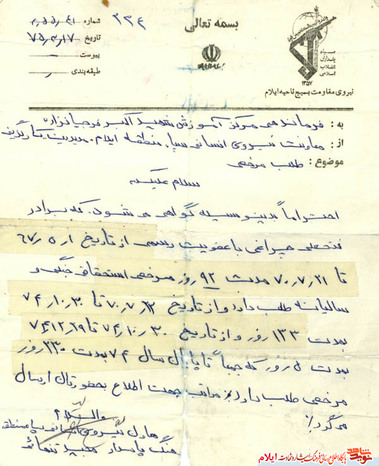 بسمه تعالی
شماره
تاریخ ۷۵/۲/۱۷
پیوست
طبقه‌بندی
سپاه پاسداران انقلاب اسلامی
۱۳۵۷
نیروی مقاومت بسیج ناحیه ایلام
به : فرماندهی مرکز آموزش شهید اکبر
از : معاونت نیروی انسانی سپاه منطقه ایلام مدیریت
موضوع : طلب مرخصی
سلام علیکم
احتراماً بدینوسیله گواهی می شود که برادر
فتحعلی چراغی با عضویت رسمی از تاریخ ۶۷/۵/۱
تا ۷۰/۷/۲۱ مدت ۹۲ روز مرخصی استحقاق جنگی و
سالیانه طلب دارد و از تاریخ ۷۰/۷/۲۲ تا ۷۴/۱۰/۳۰
بمدت ۱۳۳ روز و از تاریخ ۷۴/۱۰/۳۰ تا ۷۴/۱۲/۲۹
بمدت ۵ روز که جمعاً تا پایان سال ۷۴ بمدت ۲۳۰ روز
مرخصی طلب دارد مراتب جهت اطلاع بحضورتان ارسال
میگردد
والسلام
معاون نیروی انسانی سپاه منطقه
پاسدار